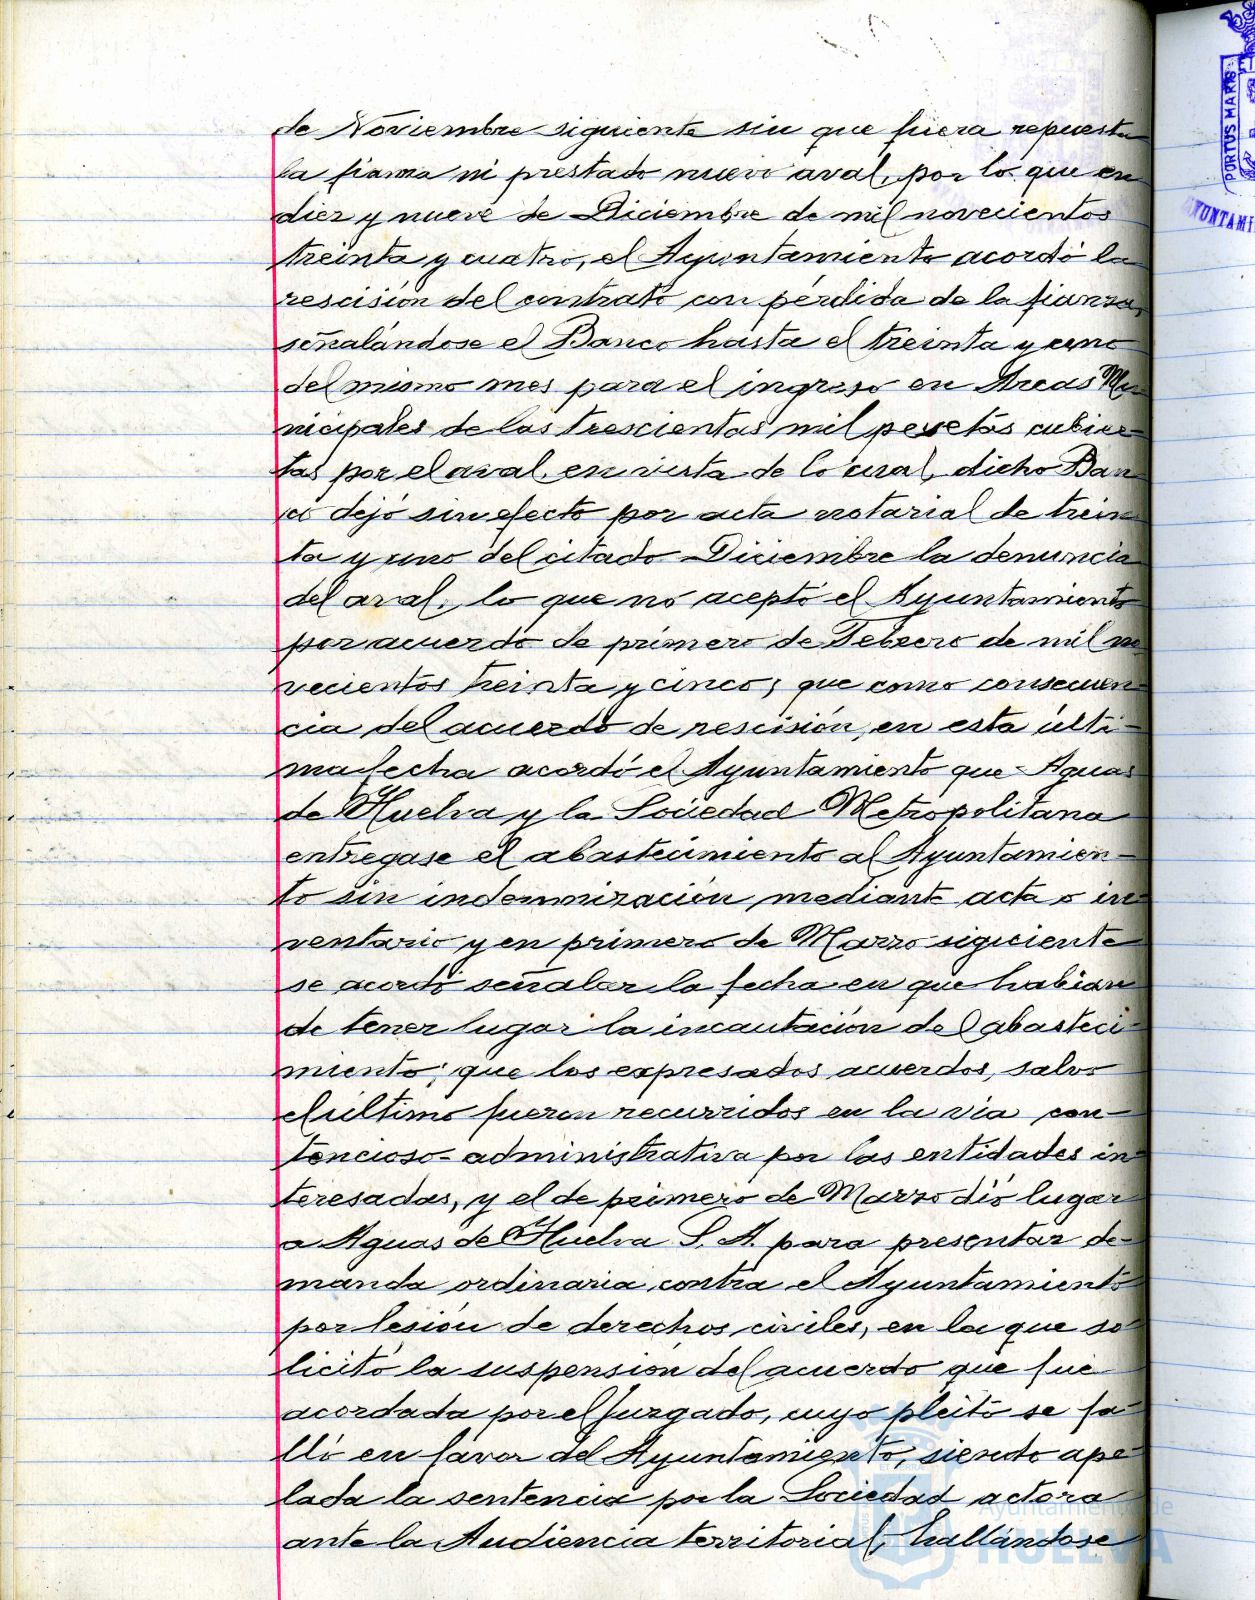 de Noviembre siguiente sin que fuera repuesta
la fianza ni prestado nuevo aval, por lo que en
diez y nueve de Diciembre de mil novecientos
treinta y cuatro, el Ayuntamiento acordó la
rescisión del contrato con pérdida de la fianza,
señalándose el Banco hasta el treinta y uno
del mismo mes para el ingreso en Arcas Mu-
nicipales de las trescientas mil pesetas cubier-
tas por el aval, en vista de lo cual, dicho Ban
co dejó sin efecto por acta notarial de trein
ta y uno del citado Diciembre la denuncia
del aval, lo que no aceptó el Ayuntamiento
por acuerdo de primero de Febrero de mil no
vecientos treinta y cinco; que como consecuen
cia del acuerdo de rescisión, en esta últi-
ma fecha acordó el Ayuntamiento que Aguas
de Huelva y la Sociedad Metropolitana
entregase el abastecimiento al Ayuntamien-
to sin indemnización mediante acta o in-
ventario y en primero de Marzo siguiente
se acordó señalar la fecha en que habian
de tener lugar la incautación del abasteci-
miento; que los expresados acuerdos, salvo
el último fueron recurridos en la via con-
tencioso-administrativa por las entidades in-
teresadas, y el de primero de Marzo dió lugar
a Aguas de Huelva S. A. para presentar de-
manda ordinaria contra el Ayuntamiento
por lesión de derechos civiles, en la que so-
licitó la suspensión del acuerdo que fué
acordada por el Juzgado, cuyo pleito se fa-
lló en favor del Ayuntamiento, siendo ape-
lada la sentencia por la Sociedad actora
ante la Audiencia territorial, hallándose
PORTUS MARIS
Ayuntamiento de
HUELVA